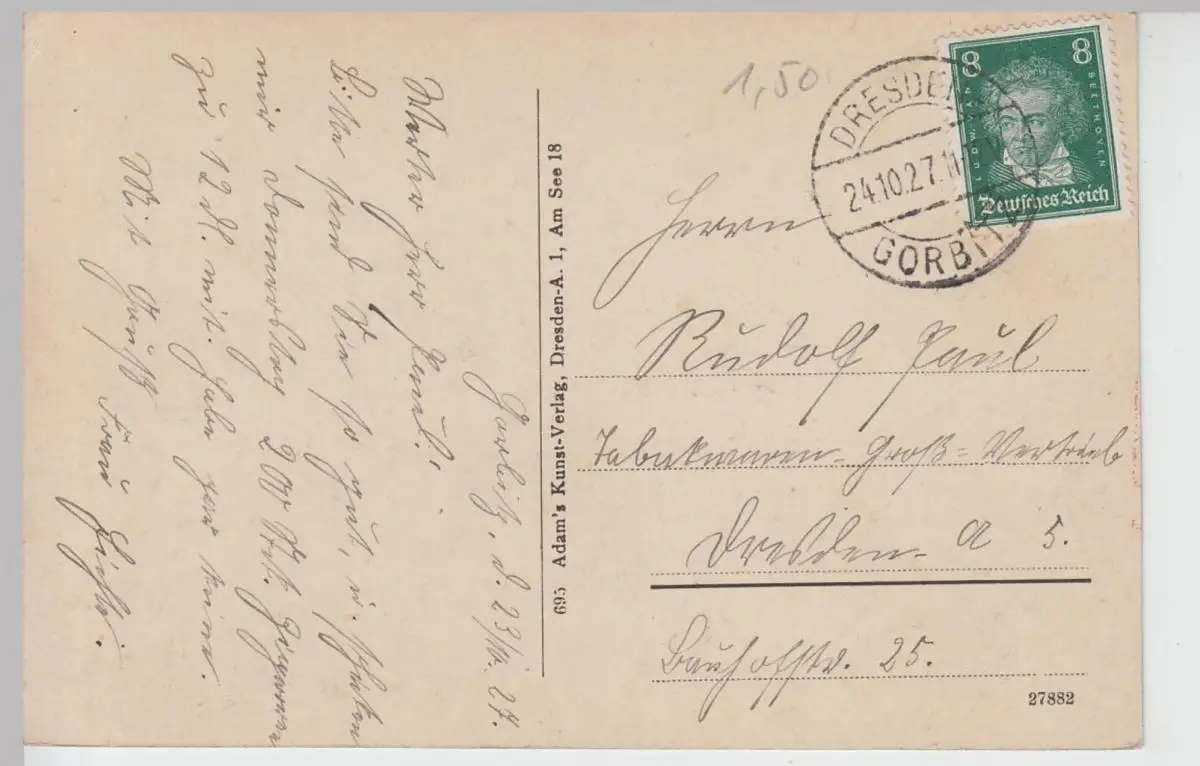 Gorbitz, d. 23/10. 27.
Werter Herr Paul!
Bitte sind Sie so gut, u. schicken
mir Donnerstag 200 St. Zigarren
zu 12 Pf. mit. habe gar keine.
Mit Gruß Frau
695 Adam's Kunst-Verlag, Dresden-A. 1, Am See 18
1,50
DRESDEN
24.10.27.
GORBITZ
8 8
LUDW. VAN BEETHOVEN
Deutsches Reich
Herrn
Rudolf Paul
Tabakwaren-Groß-Vertrieb
Dresden-A 5.
Bauhofstr. 25.
27882